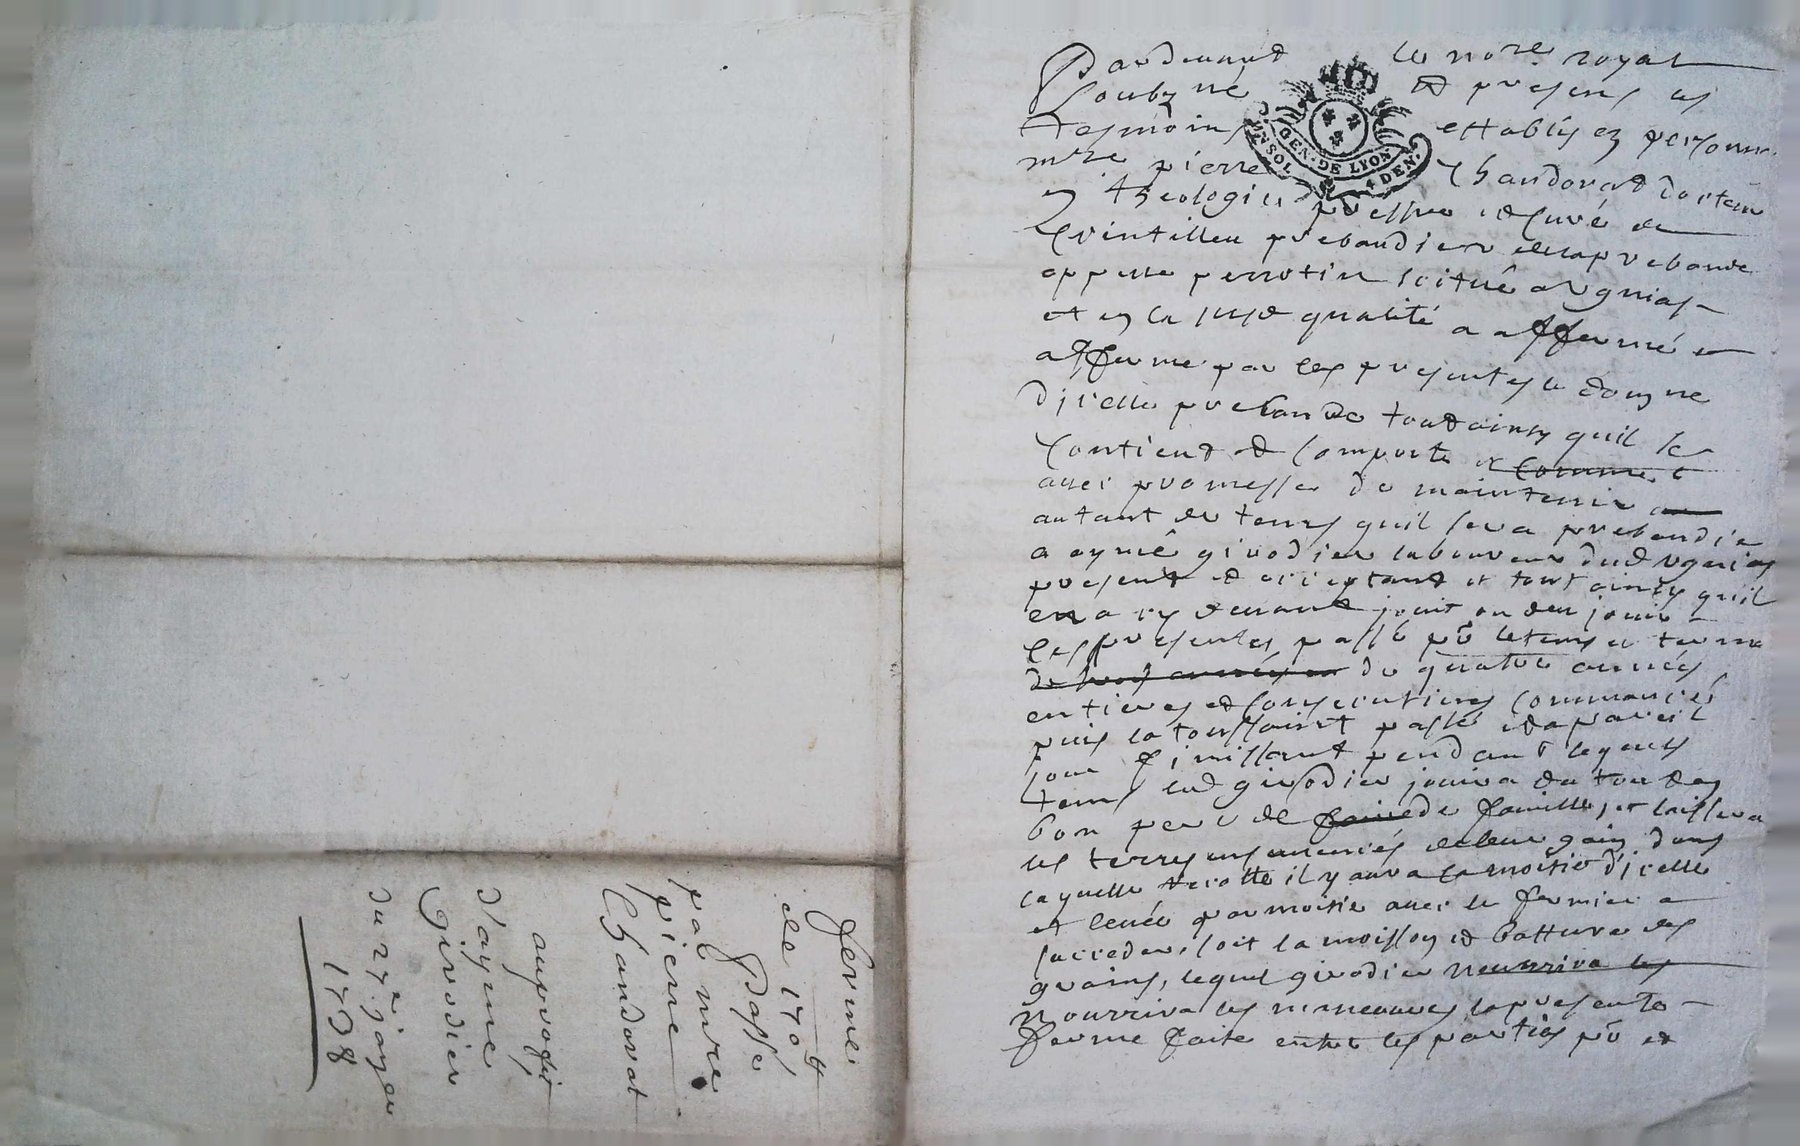 Pardevant le no.re royal
soubz.né et presens les
tesmoins establis en personne
m.re pierre Chandorat docteur
en theologie prestre et curé de
Quintilleu prebandier de la prebande
appelle perrotin scitué a Ugnias
et en la susd qualité a affermé et
afferme par les presentes le domne
dicelle prebande tout ainsy quil se
Contient et Comporte et
avec promesse de maintenir
autant de temps quil sera prebandie
a aymé girodier laboureur dud Ugnias
present et acceptant et tout ainsy quil
en a cy devant jouit ou deu jouir
les presentes passé po.r le tems et terme
de trois années de quatre années
entieres et consecutives commancés
puis la toussaint passé et a pareil
jour finissant pendant lequels
tems led girodier jouira du tout en
bon pere de famille, et laissera
les terres ensemencés de leur gain dans
laquelle recolte il y aura la moitié dicelle
et levée par moitié avec le fermier a
succeder, soit la moisson et batture des
grains, lequel girodier nourrira les
nourrira les maneuvres la presente
ferme faite entre les parties po.r et
GEN. DE LYON
UN SOL 4 DEN.
ferme
de 170#
Passé
par mre
pierre
Chandorat
au profit
d'ayme
Girodier
du 27.e janver
1738